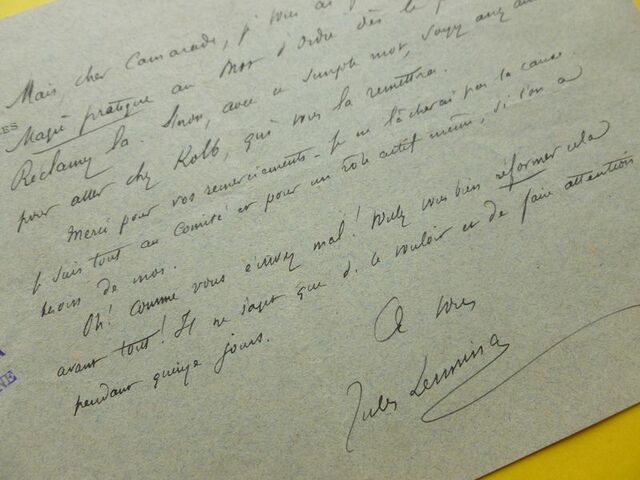 Mais, cher Camarade, je vous ai
Magie pratique au Mot d'Ordre dès le
Reclamez la. Sinon, avec ce simple mot, soyez assez
pour aller chez Kolb, qui vous la remettra.
Merci pour vos remerciements – Je ne lâcherai pas la cause.
Je suis tout au Comité et pour un rôle actif même, si l'on a
besoin de moi.
Oh! comme vous écrivez mal! Voulez vous bien réformer cela
avant tout! Il ne s'agit que de le vouloir et de faire attention
pendant quinze jours.
A vous
Jules Lermina
RES
A
NE